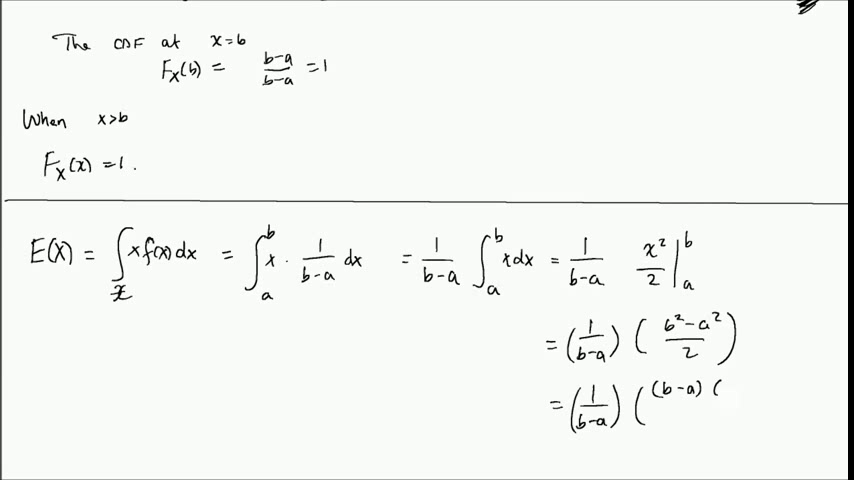 The CDF at x=b
F_X(b) = (b-a)/(b-a) = 1
When x>b
F_X(x) = 1.
E(X) = ∫_x x f(x) dx = ∫_a^b x · 1/(b-a) dx = 1/(b-a) ∫_a^b x dx = 1/(b-a) x²/2 |_a^b
= (1/(b-a)) ((b²-a²)/2)
= (1/(b-a)) ( (b-a) (